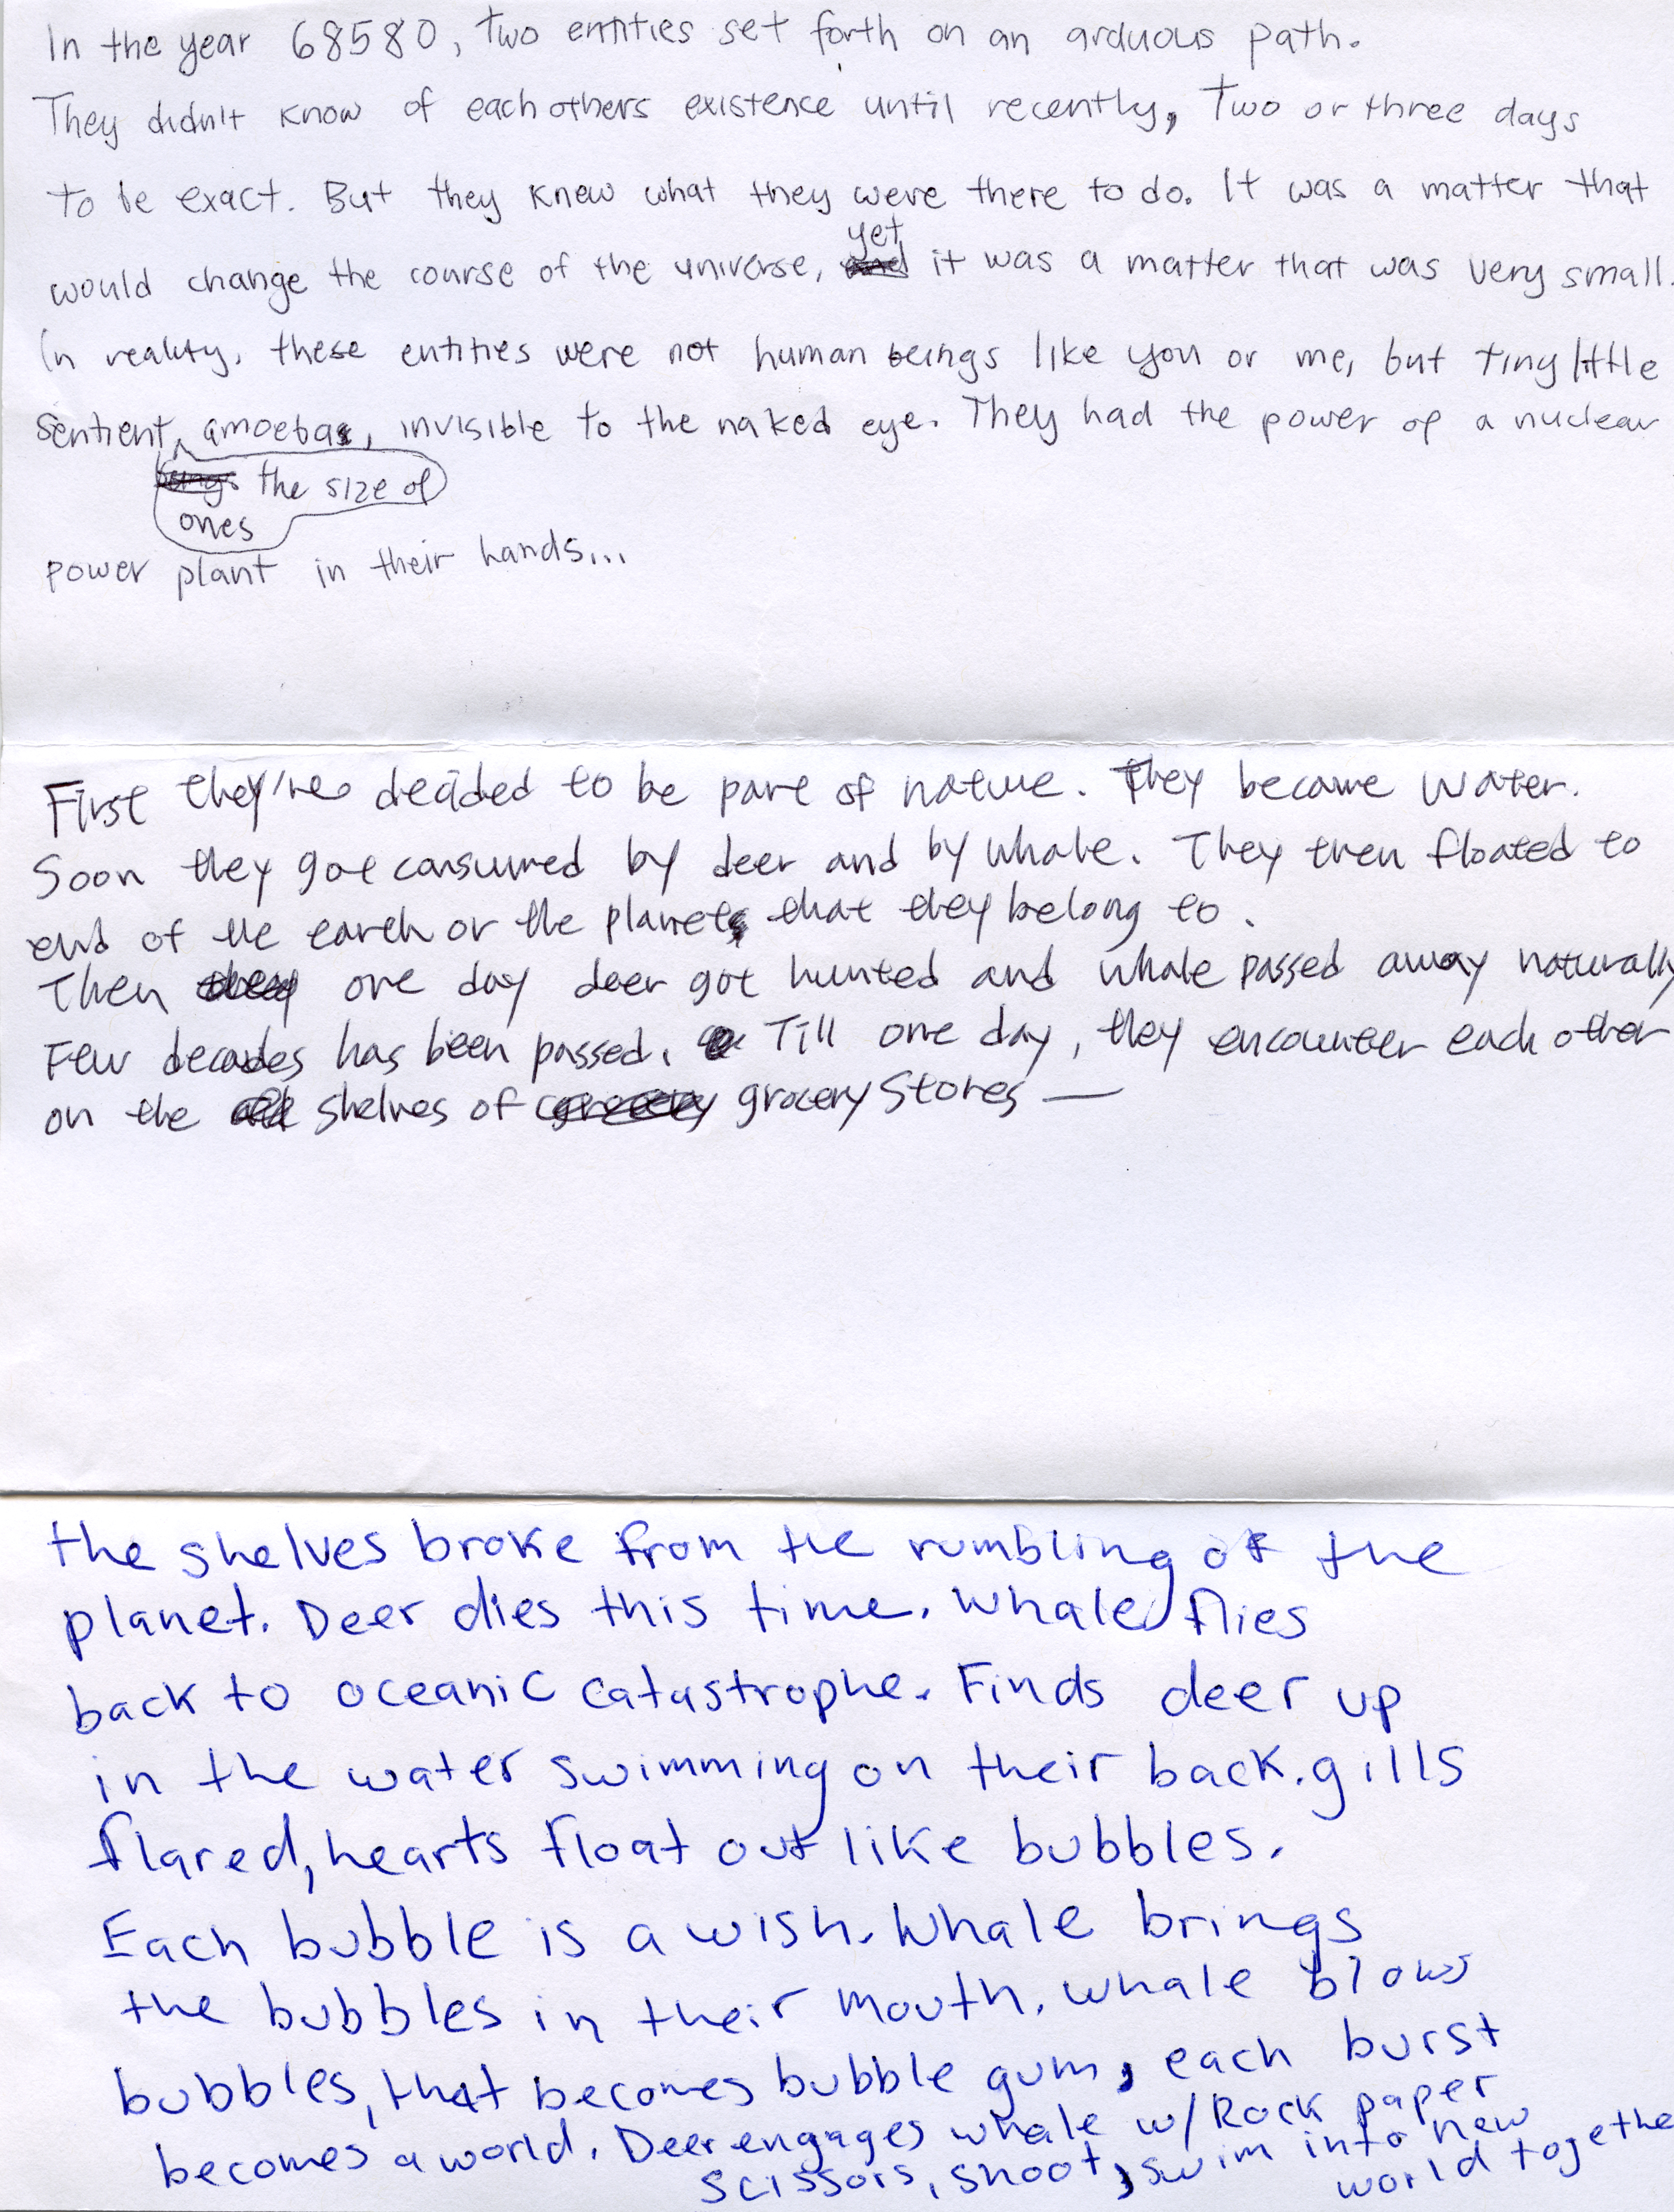 In the year 68580, two entities set forth on an arduous path.
They didn't know of each others existence until recently, two or three days
to be exact. But they knew what they were there to do. It was a matter that
yet
would change the course of the universe, and it was a matter that was very small.
In reality, these entities were not human beings like you or me, but tiny little
sentient amoebas, invisible to the naked eye. They had the power of a nuclear
beings the size of
ones
power plant in their hands...
First they're decided to be part of nature. They became water.
Soon they got consumed by deer and by whale. They then floated to
end of the earth or the planets that they belong to.
Then they one day deer got hunted and whale passed away naturally
Few decades has been passed. Till one day, they encounter each other
on the shelves of grocery stores —
the shelves broke from the rumbling of the
planet. Deer dies this time. Whale flies
back to oceanic catastrophe. Finds deer up
in the water swimming on their back. gills
flared, hearts float out like bubbles.
Each bubble is a wish. Whale brings
the bubbles in their mouth. Whale blows
bubbles, that becomes bubble gum, each burst
becomes a world. Deer engages whale w/ Rock paper
scissors, shoot, swim into new
world together